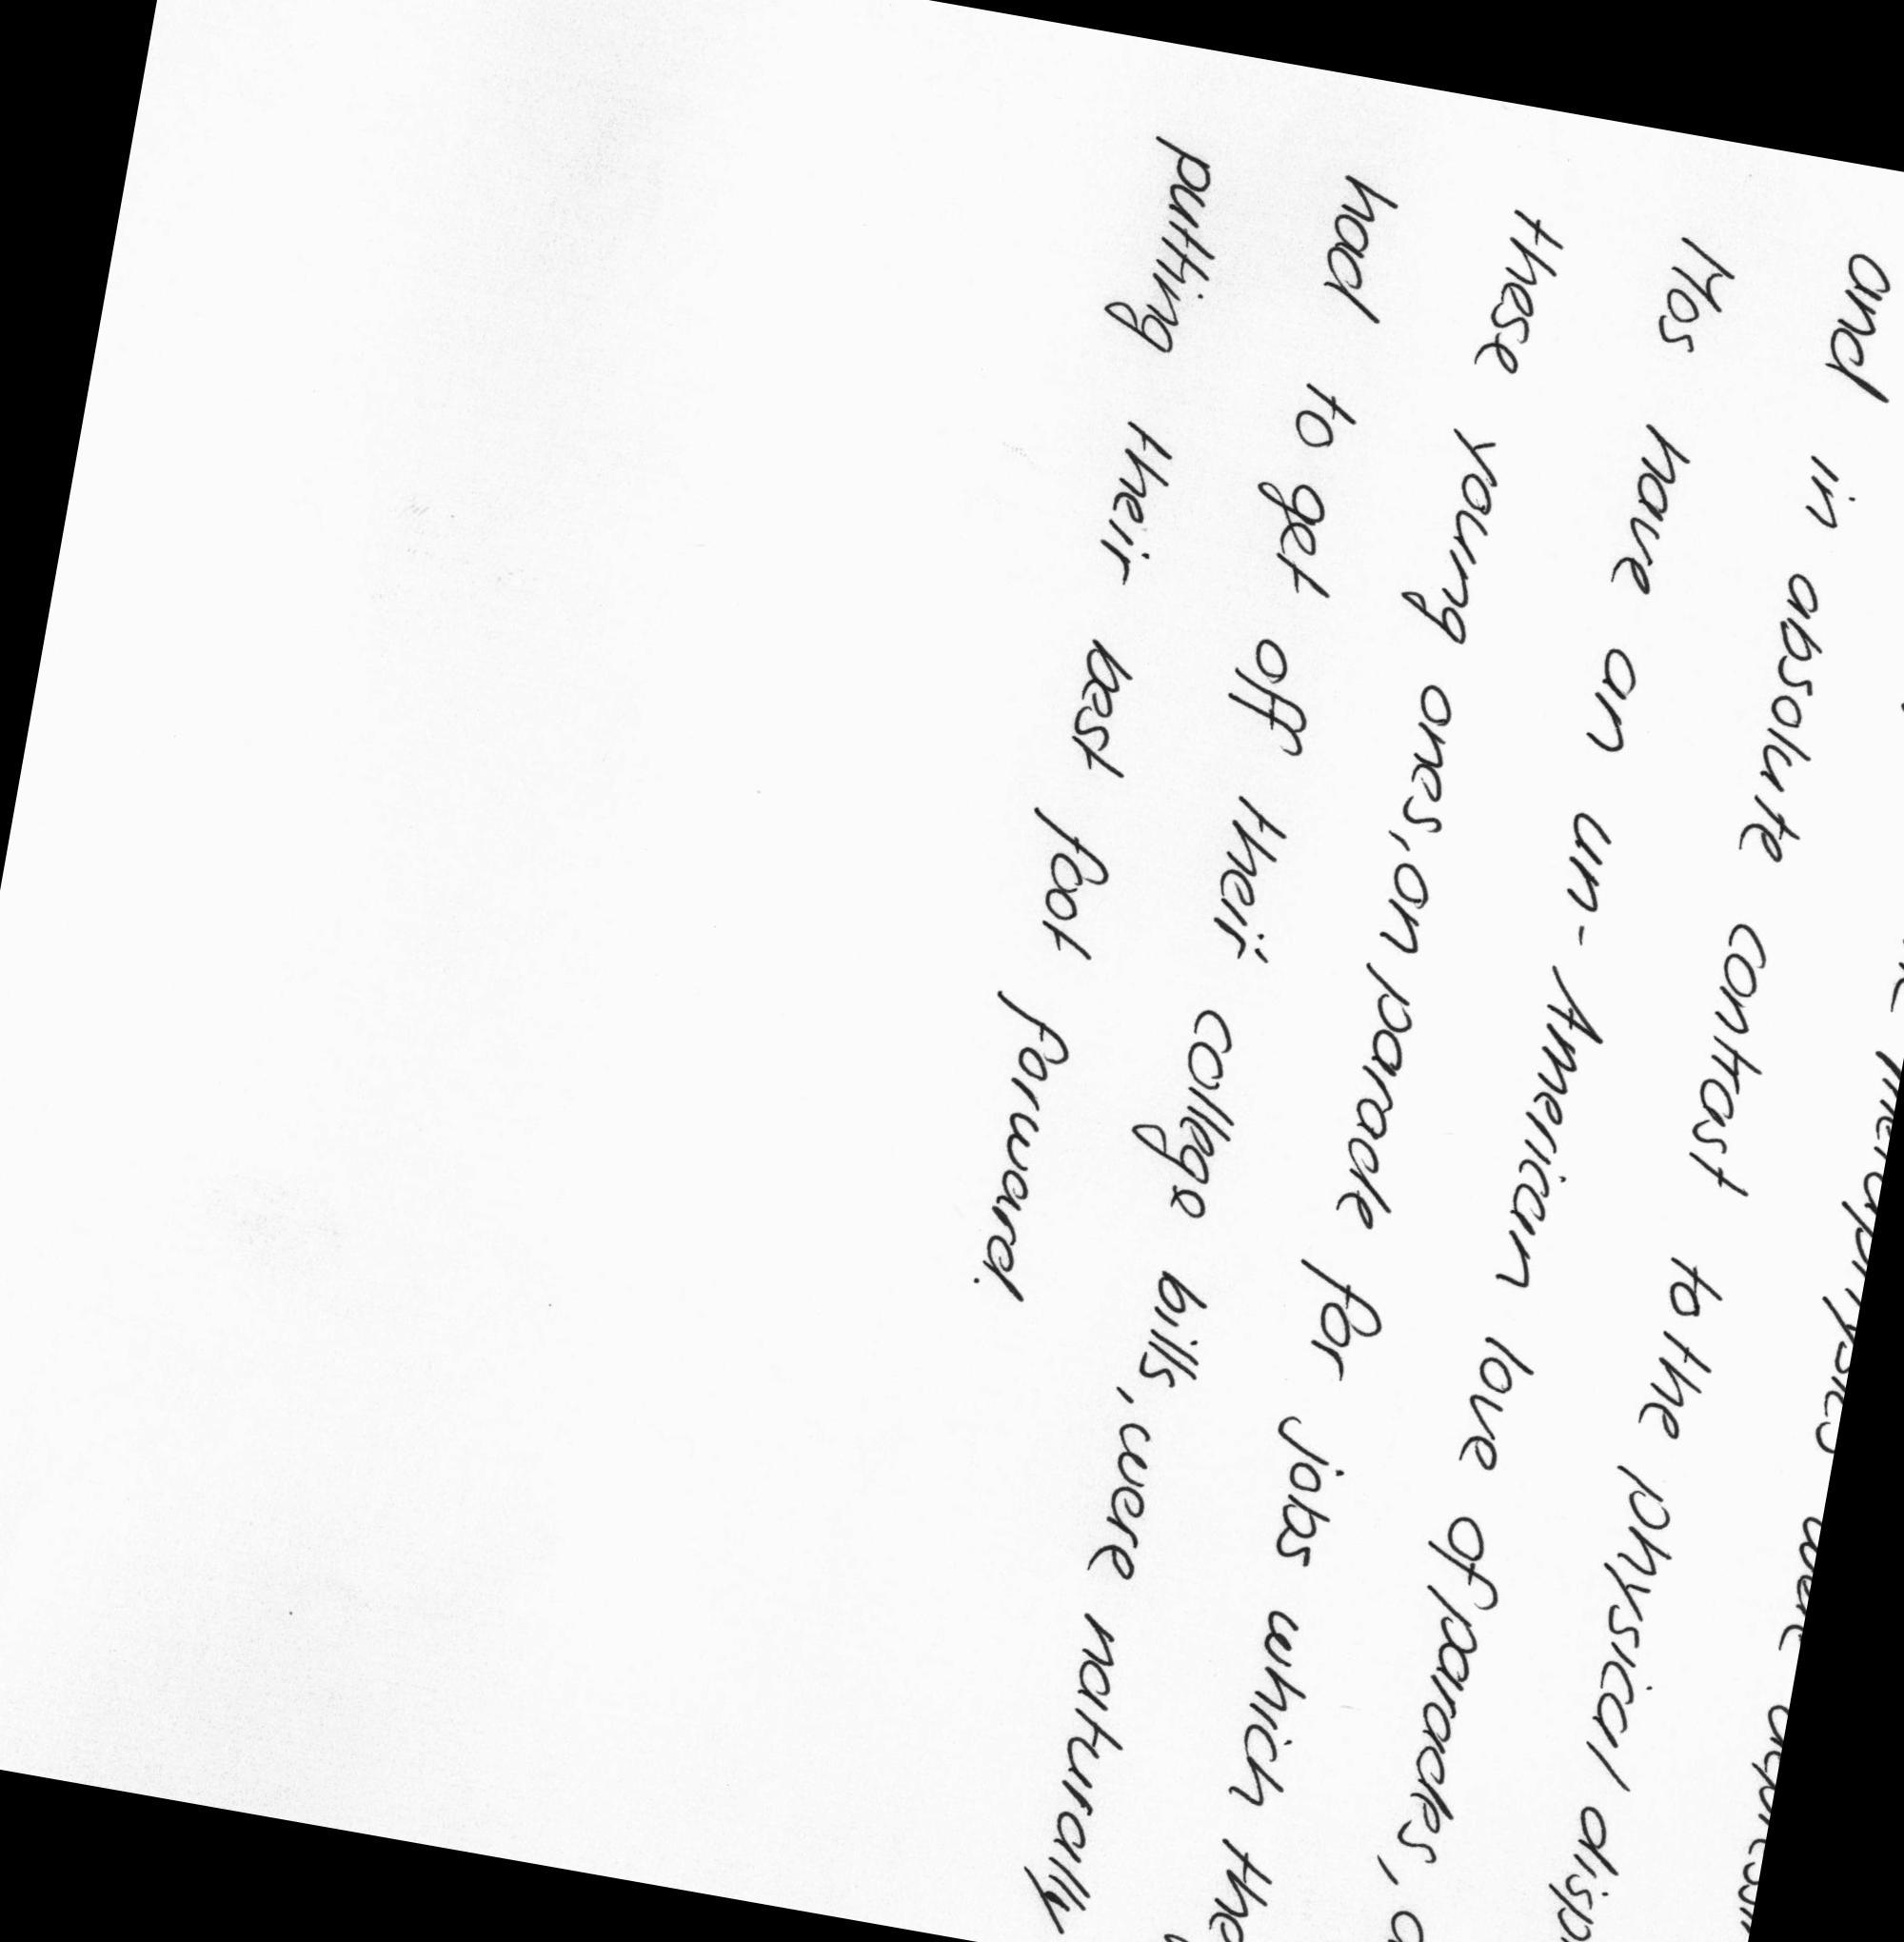 and in absolute contrast to the physical disp
Mos have an un-American love of parades, a
these young ones, on parade for jobs which the
had to get off their college bills, were naturally
putting their best foot forward.